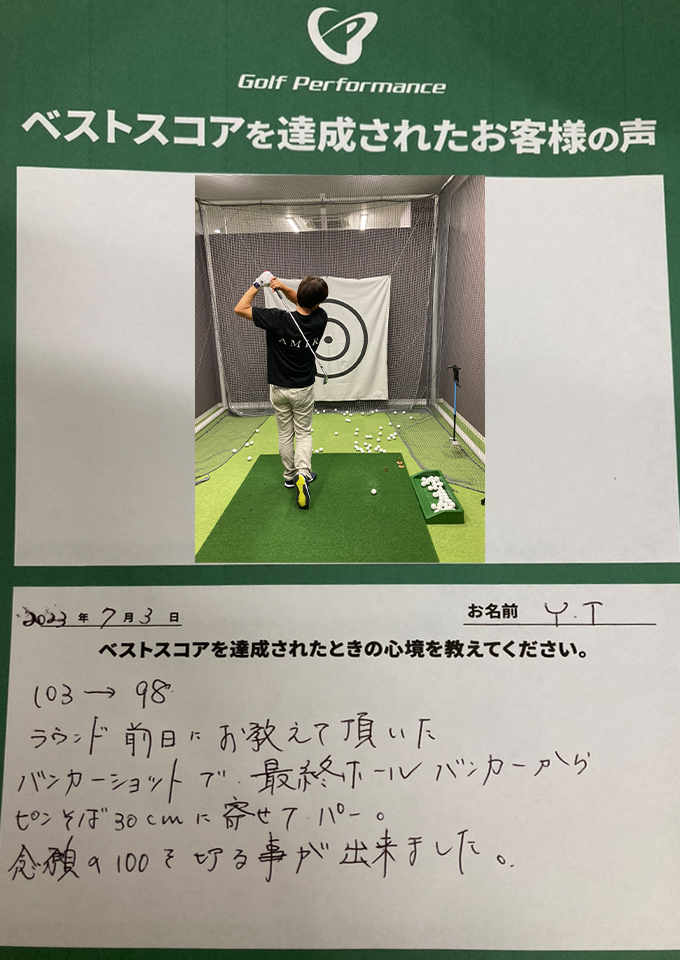 Golf Performance
ベストスコアを達成されたお客様の声
AMIR
2023 年 7 月 3 日
お名前 Y.T
ベストスコアを達成されたときの心境を教えてください。
103 → 98
ラウンド前日にお教えて頂いた
バンカーショットで、最終ホールバンカーから
ピンそば30cmに寄せてパー。
念願の100を切る事が出来ました。